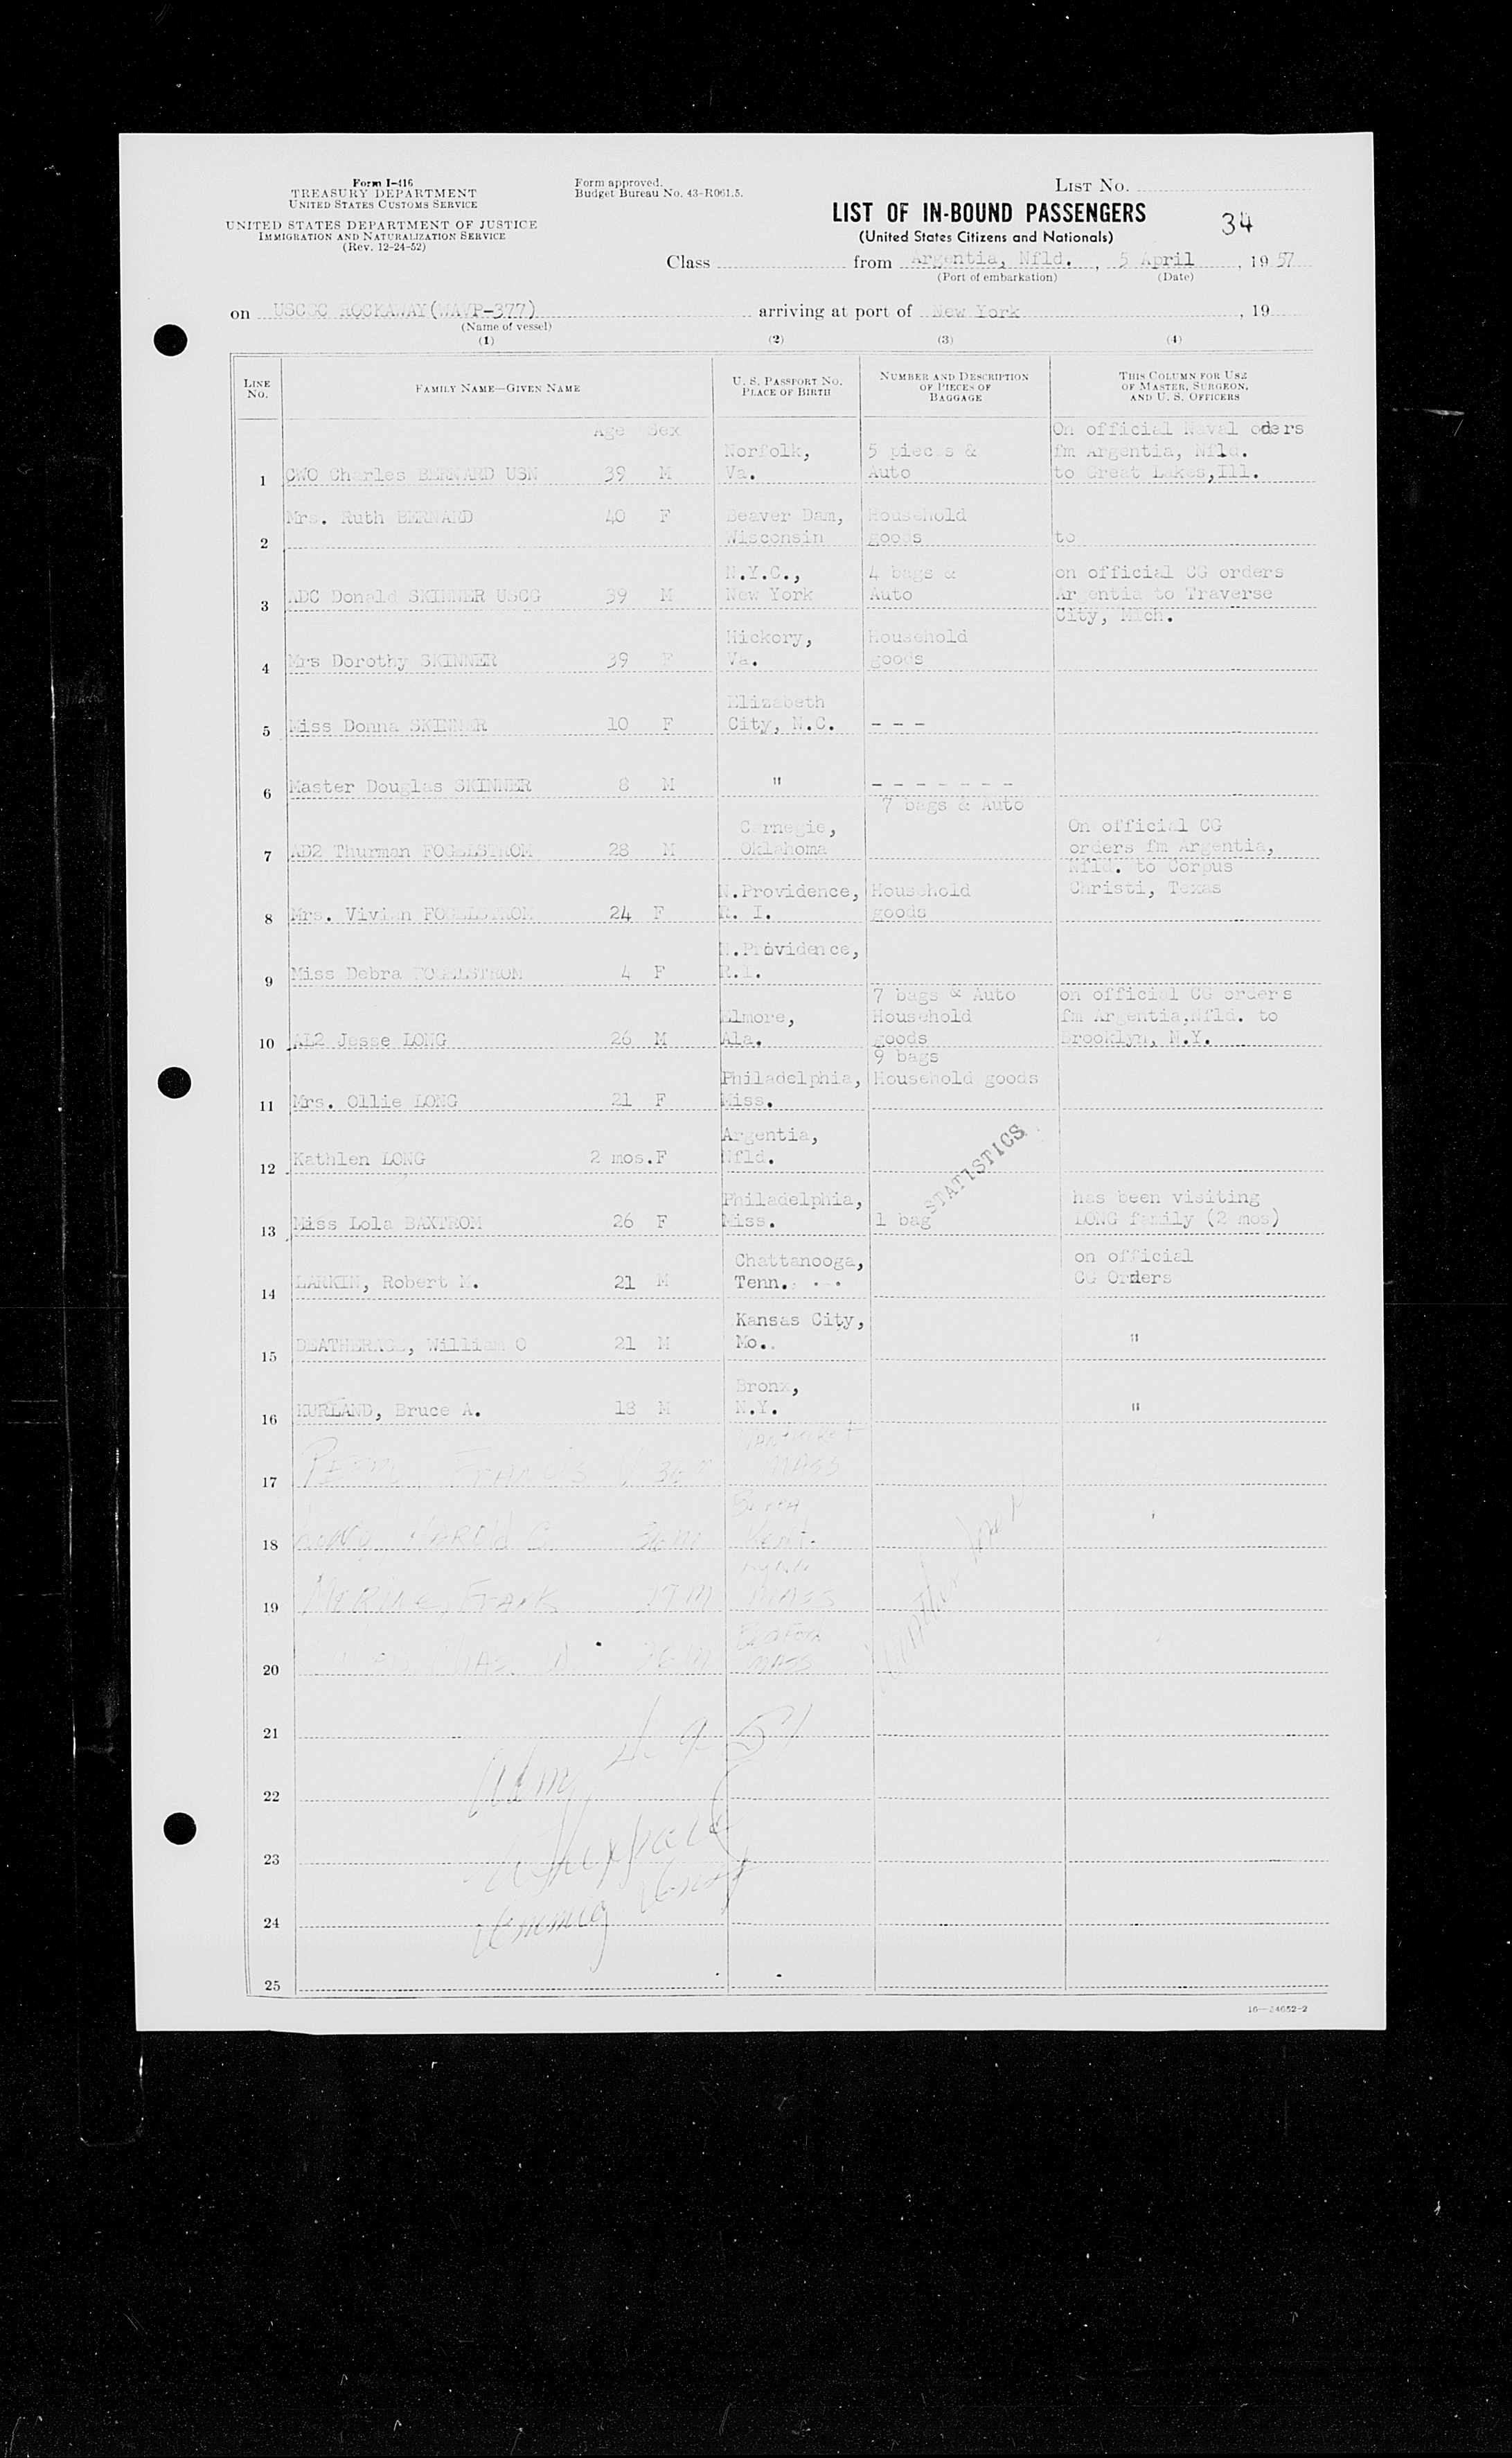 Form I-416
TREASURY DEPARTMENT
UNITED STATES CUSTOMS SERVICE
UNITED STATES DEPARTMENT OF JUSTICE
IMMIGRATION AND NATURALIZATION SERVICE
(Rev. 12-24-52)
Form approved.
Budget Bureau No. 43-R061.5.
LIST NO.
LIST OF IN-BOUND PASSENGERS
34
(United States Citizens and Nationals)
Class from Argentia, Nfld. , 5 April , 19 57
(Port of embarkation) (Date)
on USCGC ROCKAWAY(WAVP-377) arriving at port of New York , 19
(Name of vessel)
(1) (2) (3) (4)
LINE NO. FAMILY NAME—GIVEN NAME U. S. PASSPORT NO. PLACE OF BIRTH NUMBER AND DESCRIPTION OF PIECES OF BAGGAGE THIS COLUMN FOR USE OF MASTER, SURGEON, AND U. S. OFFICERS
Age Sex On official Naval oders
Norfolk, 5 pieces & fm Argentia, Nfld.
1 CWO Charles BERNARD USN 39 M Va. Auto to Great Lakes,Ill.
Mrs. Ruth BERNARD 40 F Beaver Dam, Household
2 Wisconsin goods to
N.Y.C., 4 bags & on official CG orders
3 ADC Donald SKINNER USCG 39 M New York Auto Argentia to Traverse
City, Mich.
Hickory, Household
4 Mrs Dorothy SKINNER 39 F Va. goods
Elizabeth
5 Miss Donna SKINNER 10 F City, N.C. - - -
6 Master Douglas SKINNER 8 M " - - - - - - -
7 bags & Auto
Carnegie, On official CG
7 AD2 Thurman FOGELSTROM 28 M Oklahoma orders fm Argentia,
Nfld. to Corpus
N.Providence, Household Christi, Texas
8 Mrs. Vivian FOGELSTROM 24 F R. I. goods
N.Providence,
9 Miss Debra FOGELSTROM 4 F R.I.
7 bags & Auto on official CG orders
Elmore, Household fm Argentia,Nfld. to
10 AL2 Jesse LONG 26 M Ala. goods Brooklyn, N.Y.
9 bags
Philadelphia, Household goods
11 Mrs. Ollie LONG 21 F Miss.
Argentia,
12 Kathlen LONG 2 mos. F Nfld.
STATISTICS
Philadelphia, has been visiting
13 Miss Lola BAXTROM 26 F Miss. 1 bag LONG family (2 mos)
Chattanooga, on official
14 LARKIN, Robert M. 21 M Tenn. CG Orders
Kansas City,
15 DEATHERAGE, William O 21 M Mo. "
Bronx,
16 HURLAND, Bruce A. 18 M N.Y. "
17 Francis 36 M MASS
18 Harold C. 36 M Kent.
19 Frank 19 M MASS
20 26 M MASS
21
22 Adm
23
24 Immig
25
16—24652-2